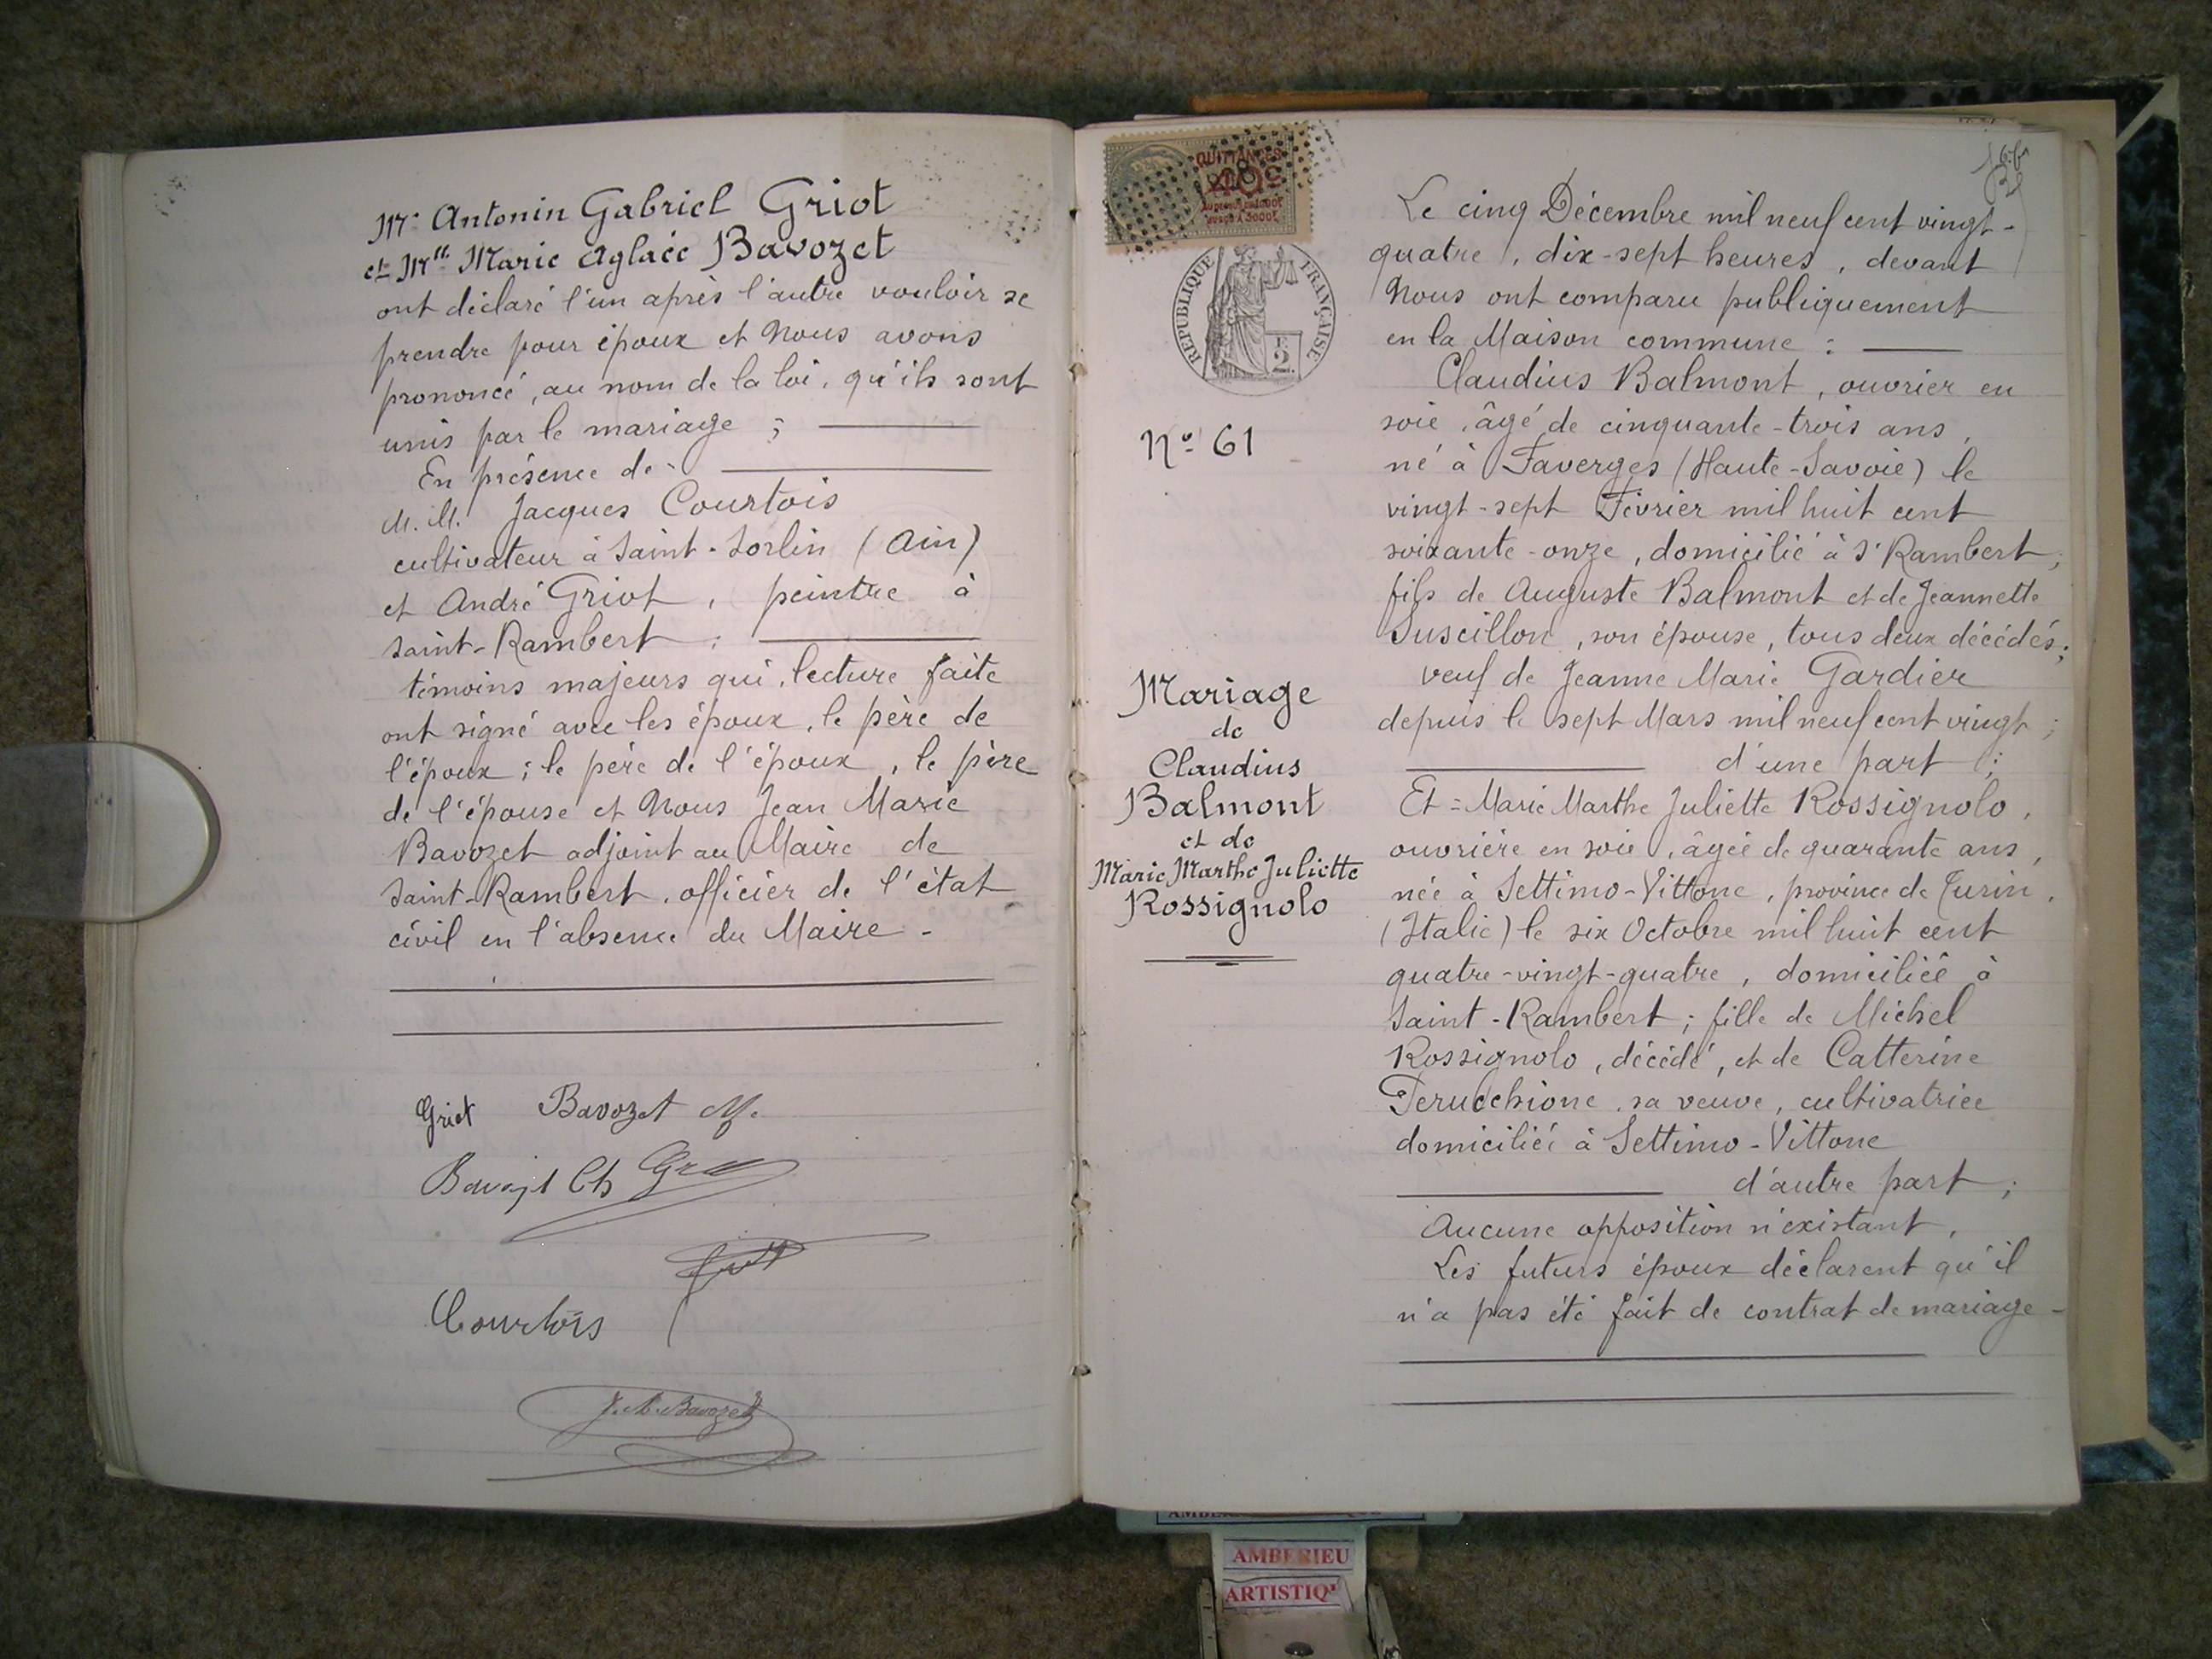 Mr Antonin Gabriel Griot
et Mlle Marie Aglaée Bavozet
ont déclaré l'un après l'autre vouloir se
prendre pour époux et Nous avons
prononcé, au nom de la loi, qu'ils sont
unis par le mariage ;
En présence de
M.M. Jacques Courtois
cultivateur à Saint-Sorlin (Ain)
et André Griot, peintre à
Saint-Rambert ;
témoins majeurs qui, lecture faite
ont signé avec les époux, le père de
l'époux ; le père de l'époux, le père
de l'épouse et Nous Jean Marie
Bavozet adjoint au Maire de
Saint-Rambert, officier de l'état
civil en l'absence du Maire -
Griot Bavozet M.
Bavozet Ch
Courtois
J. M. Bavozet
QUITTANCES
RÉPUBLIQUE FRANÇAISE
2
No 61
Mariage
de
Claudius
Balmont
et de
Marie Marthe Juliette
Rossignolo
Le cinq Décembre mil neuf cent vingt-
quatre, dix-sept heures, devant
Nous ont comparu publiquement
en la Maison commune :
Claudius Balmont, ouvrier en
soie, âgé de cinquante-trois ans,
né à Faverges (Haute-Savoie) le
vingt-sept Février mil huit cent
soixante-onze, domicilié à St Rambert,
fils de Auguste Balmont et de Jeannette
Suscillon, son épouse, tous deux décédés ;
veuf de Jeanne Marie Gardier
depuis le sept Mars mil neuf cent vingt ;
d'une part ;
Et = Marie Marthe Juliette Rossignolo,
ouvrière en soie, âgée de quarante ans,
née à Settimo-Vittone, province de Turin,
(Italie) le six Octobre mil huit cent
quatre-vingt-quatre, domiciliée à
Saint-Rambert ; fille de Michel
Rossignolo, décédé, et de Catterine
Perucchione, sa veuve, cultivatrice
domiciliée à Settimo-Vittone
d'autre part ;
Aucune opposition n'existant,
Les futurs époux déclarent qu'il
n'a pas été fait de contrat de mariage -
AMBERIEU
ARTISTIQ